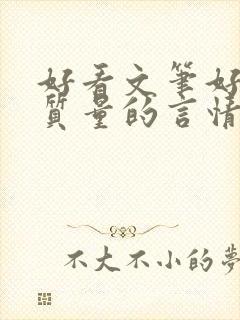 好看文筆好
質量的言情
不大不小的夢